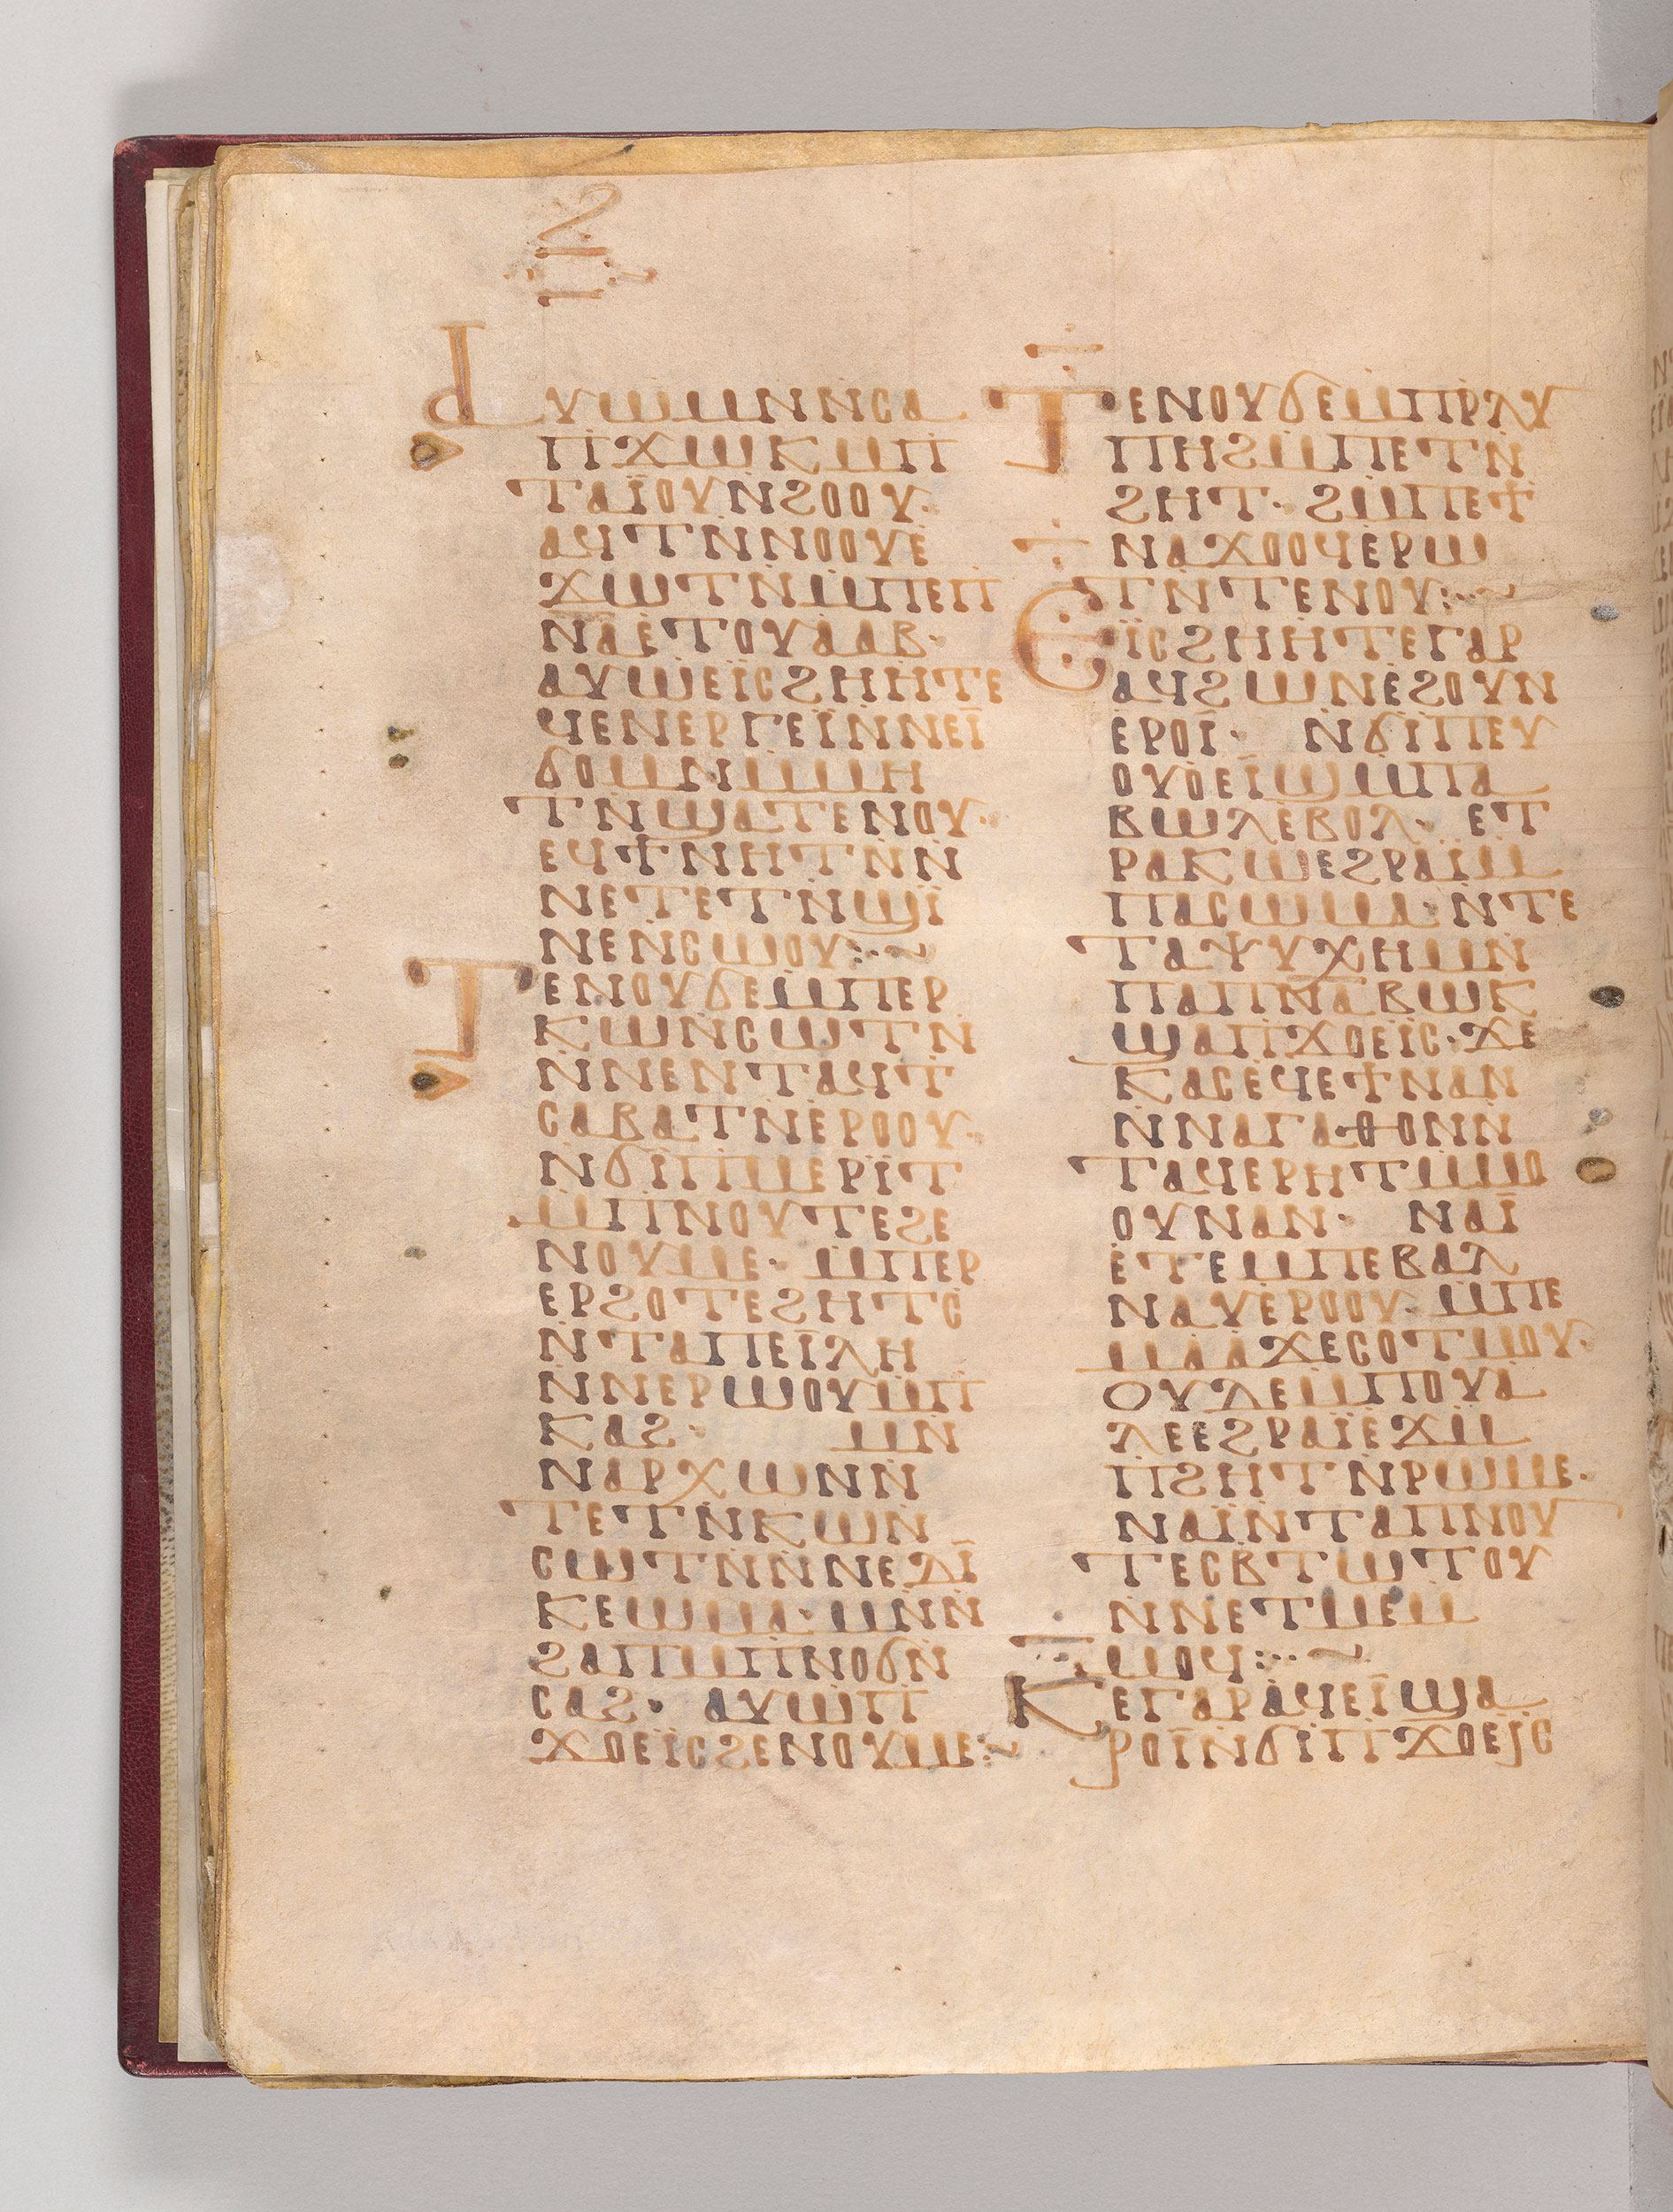 ϩ
ⲓⲏ
ⲁⲩⲱ ⲙⲛⲛⲥⲁ
ⲡϫⲱⲕ ⲙⲡ
ⲧⲁⲓ̈ⲟⲩ ⲛϩⲟⲟⲩ·
ⲁϥⲧⲛⲛⲟⲟⲩ ⲉ
ϫⲱⲧⲛ ⲙⲡⲉⲡ
ⲛ̅ⲁ̅ ⲉⲧⲟⲩⲁⲁⲃ·
ⲁⲩⲱ ⲉⲓ̈ⲥ ϩⲏⲏⲧⲉ
ϥⲉⲛⲉⲣⲅⲉⲓ̈ ⲛⲛⲉⲓ̈
ϭⲟⲙ ⲛⲙⲙⲏ
ⲧⲛ ϣⲁ ⲧⲉⲛⲟⲩ·
ⲉϥϯ ⲛⲏⲧⲛ ⲛ
ⲛⲉⲧⲉⲧⲛϣⲓ̈
ⲛⲉ ⲛⲥⲱⲟⲩ:··~
ⲧⲉⲛⲟⲩ ϭⲉ ⲙⲡⲉⲣ
ⲕⲱ ⲛⲥⲱⲧⲛ
ⲛⲛⲉⲛⲧⲁϥⲧ
ⲥⲁⲃⲁⲧⲛ ⲉⲣⲟⲟⲩ·
ⲛϭⲓ ⲡⲙⲉⲣⲓ̈ⲧ
ⲙⲡⲛⲟⲩⲧⲉ ϩⲉ
ⲛⲟⲩⲙⲉ· ⲙⲡⲉⲣ
ⲉⲣϩⲟⲧⲉ ϩⲏⲧⲥ
ⲛⲧⲁⲡⲉⲓ̈ⲗⲏ
ⲛⲛⲉⲣⲱⲟⲩ ⲙⲡ
ⲕⲁϩ· ⲙⲛ
ⲛⲁⲣⲭⲱⲛ ⲛ
ⲧⲉⲧⲛⲕⲱ ⲛ
ⲥⲱⲧⲛ ⲛⲛⲉⲇⲓ̈
ⲕⲉⲱⲙⲁ· ⲙⲛ ⲛ
ϩⲁⲡ ⲙⲡⲛⲟϭ ⲛ
ⲥⲁϩ· ⲁⲩⲱ ⲡ
ϫⲟⲉⲓ̈ⲥ ϩⲉⲛ ⲟⲩⲙⲉ:~
ⲧⲉⲛⲟⲩ ϭⲉ ⲙⲡⲣⲗⲩ
ⲡⲏ ϩⲙ ⲡⲉⲧⲛ
ϩⲏⲧ· ϩⲙ ⲡⲉϯ
ⲛⲁϫⲟⲟϥ ⲉⲣⲱ
ⲧⲛ ⲧⲉⲛⲟⲩ:·~
ⲉⲓ̈ⲥ ϩⲏⲏⲧⲉ ⲅⲁⲣ
ⲁϥϩⲱⲛ ⲉϩⲟⲩⲛ
ⲉⲣⲟⲓ̈· ⲛϭⲓ ⲡⲉⲩ
ⲟⲩⲟⲉⲓ̈ϣ ⲙⲡⲁ
ⲃⲱⲗ ⲉⲃⲟⲗ· ⲉⲧ
ⲣⲁⲕⲱ ⲉϩⲣⲁⲓ̈ ⲙ
ⲡⲁⲥⲱⲙⲁ· ⲛⲧⲉ
ⲧⲁⲯⲩⲭⲏ ⲙⲛ
ⲡⲁⲡⲛ̅ⲁ̅ ⲃⲱⲕ
ϣⲁ ⲡϫⲟⲉⲓ̈ⲥ· ϫⲉ
ⲕⲁⲥ ⲉϥⲉϯ ⲛⲁⲛ
ⲛⲛⲁⲅⲁⲑⲟⲛ ⲛ
ⲧⲁϥⲉⲣⲏⲧ ⲙⲙⲟ
ⲟⲩ ⲛⲁⲛ· ⲛⲁⲓ̈
ⲉⲧⲉ ⲙⲡⲉ ⲃⲁⲗ
ⲛⲁⲩ ⲉⲣⲟⲟⲩ· ⲙⲡⲉ
ⲙⲁⲁϫⲉ ⲥⲟⲧⲙⲟⲩ·
ⲟⲩⲇⲉ ⲙⲡⲟⲩⲁ
ⲗⲉ ⲉϩⲣⲁⲓ̈ ⲉϫⲙ
ⲡϩⲏⲧ ⲛⲣⲱⲙⲉ·
ⲛⲁⲓ̈ ⲛⲧⲁ ⲡⲛⲟⲩ
ⲧⲉ ⲥⲃⲧⲱⲧⲟⲩ
ⲛⲛⲉⲧⲙⲉ ⲙ
ⲙⲟϥ:··~
ⲕⲉ ⲅⲁⲣ ⲁϥⲉⲓ̈ ϣⲁ
ⲣⲟⲓ̈ ⲛϭⲓ ⲡϫⲟⲉⲓⲥ